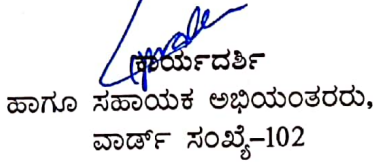 ಕಾರ್ಯದರ್ಶಿ
ಹಾಗೂ ಸಹಾಯಕ ಅಭಿಯಂತರರು,
ವಾರ್ಡ್ ಸಂಖ್ಯೆ-102